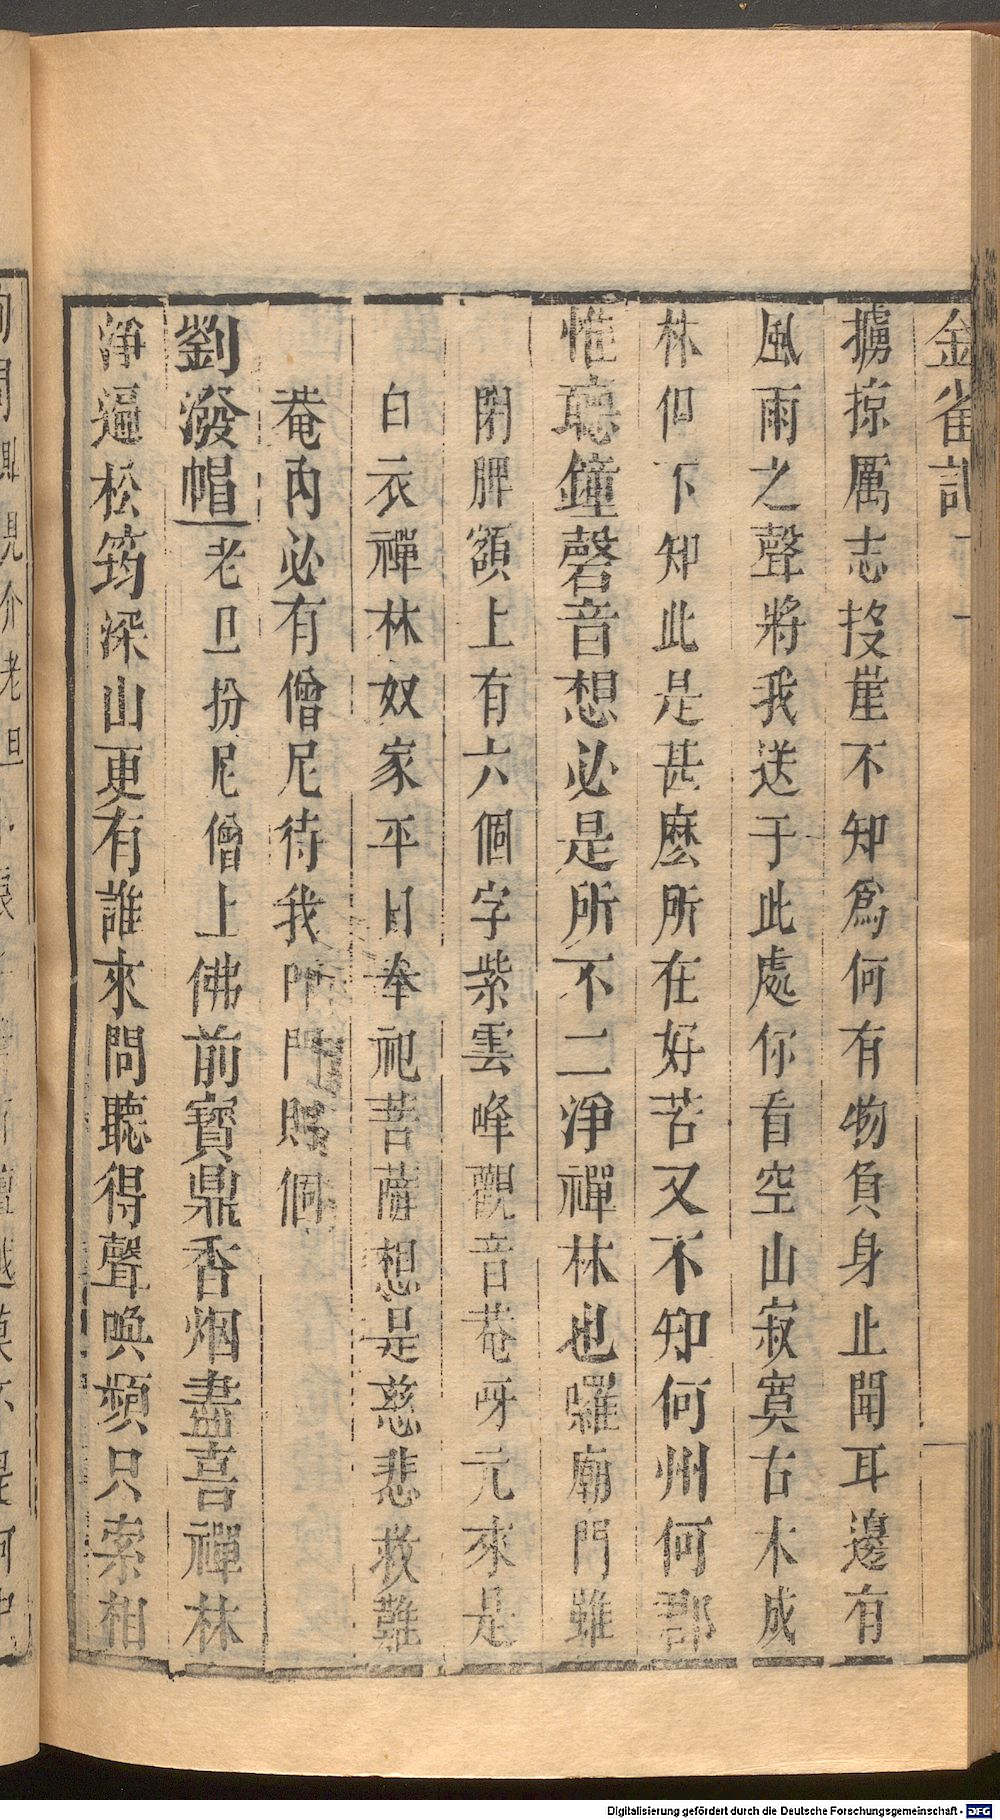 金雀記
擄掠厲志投崖不知爲何有物負身止聞耳邊有
風雨之聲將我送于此處你看空山寂寞古木成
林但下知此是甚麽所在好苦又不知何州何郡
惟聽鐘磬音想必是所不二淨禪林也囉廟門雖
閉牌額上有六個字紫雲峰觀音菴呀元來是
白衣禪林奴家平日奉祀菩薩想是慈悲救難
菴內必有僧尼待我叩門則個
劉潑帽 老旦扮尼僧上 佛前寳鼎香烟盡喜禪林
淨逼松筠深山更有誰來問聽得聲喚頻只索相
Digitalisierung gefördert durch die Deutsche Forschungsgemeinschaft - DFG